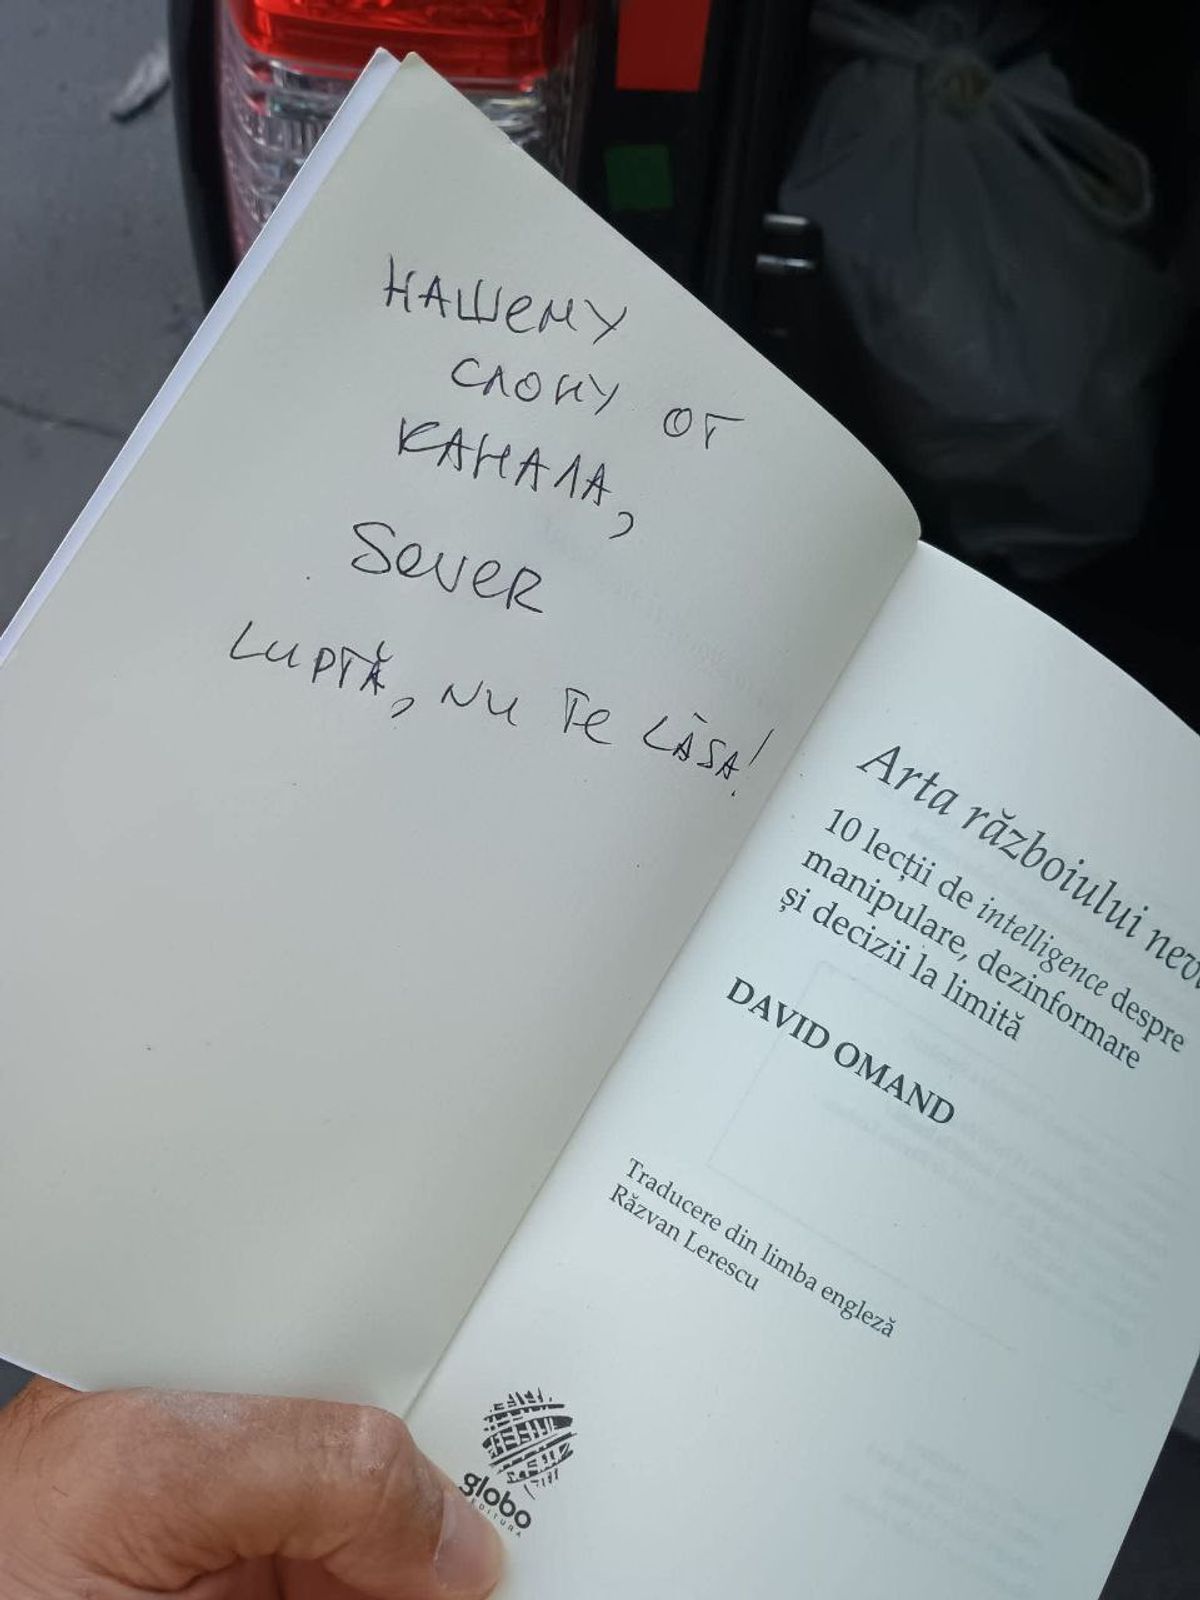 НАШЕМУ
СЛОНУ ОТ
КАНАЛА,
SEVER
LUPTĂ, NU TE LĂSA!
Arta războiului
10 lecții de intelligence despre
manipulare, dezinformare
și decizii la limită
DAVID OMAND
Traducere din limba engleză
Răzvan Lerescu
globo
EDITURA